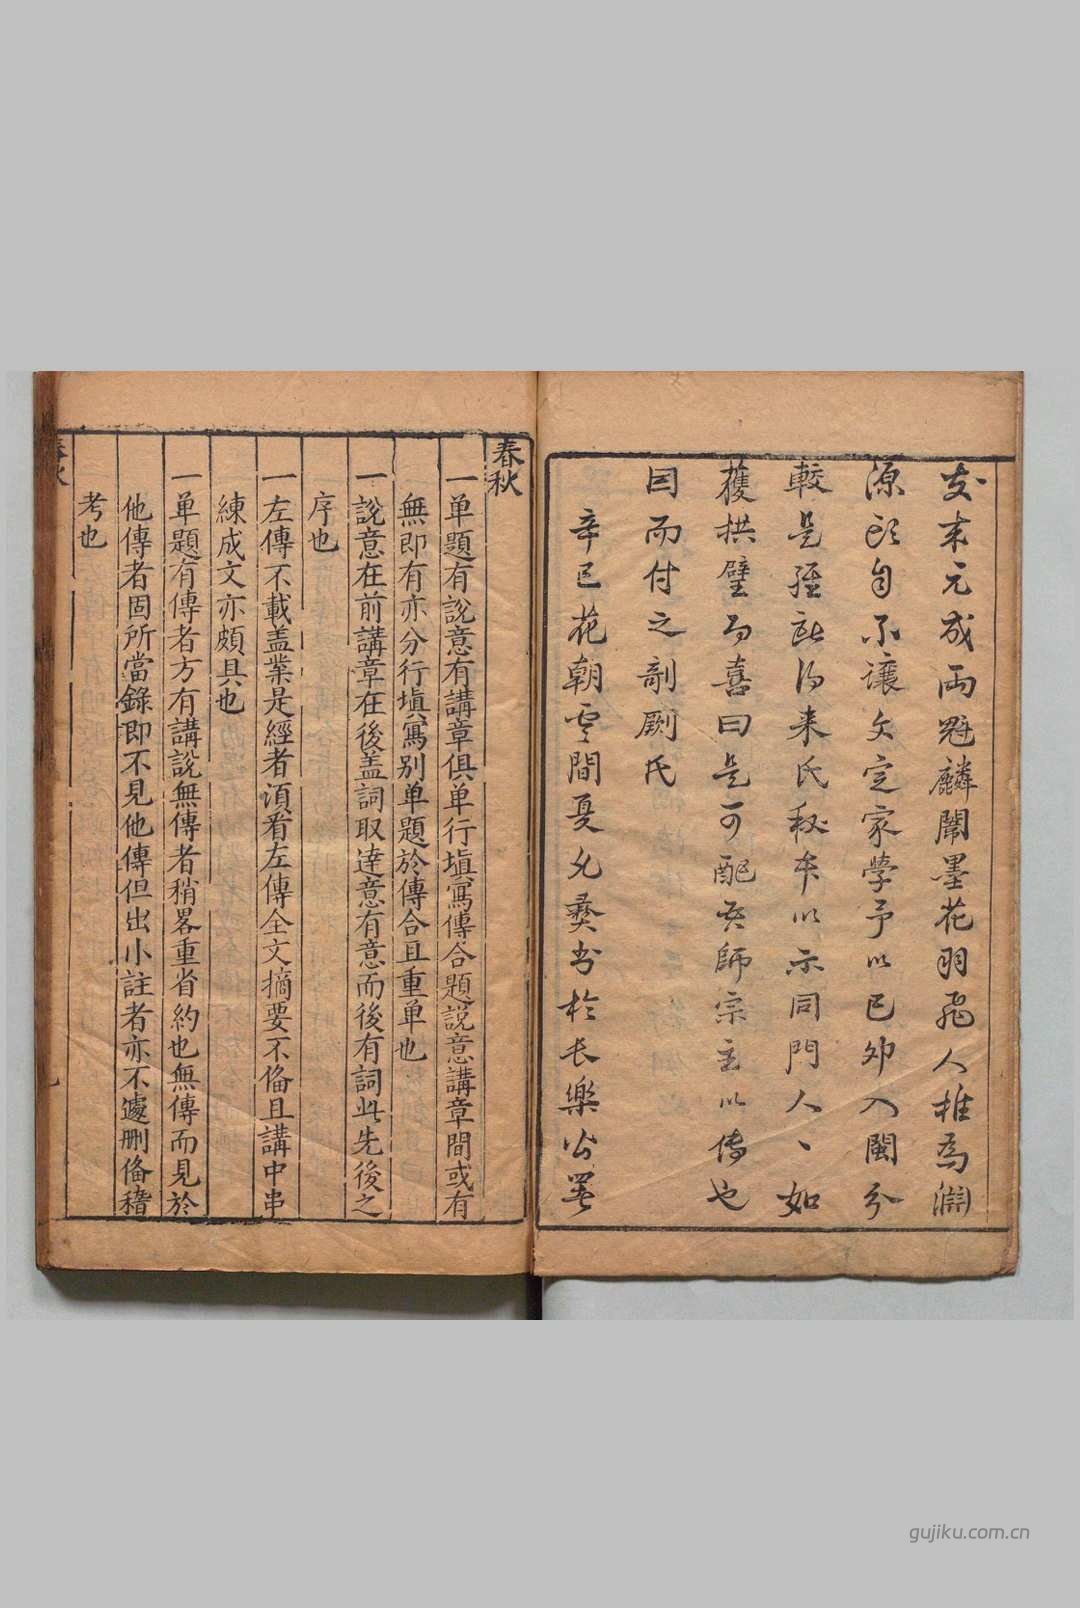 友來元成兩魁麟闈墨花羽飛人推為淵
源頭自不讓文定家學予以己卯入閩分
較是經試得来氏秘本以示同門人丶如
獲拱璧而喜曰是可配吾師宗主以傳也
因而付之剞劂氏
辛巳花朝雲間夏允彜書於長樂公署
春秋
一单題有說意有講章俱单行塡寫傳合題說意講章間或有
無即有亦分行塡寫別单題於傳合且重单也
一說意在前講章在後盖詞取達意有意而後有詞此先後之
序也
一左傳不載盖業是經者須看左傳全文摘要不俻且講中串
練成文亦頗具也
一单題有傳者方有講說無傳者稍畧重省約也無傳而見於
他傳者固所當錄即不見他傳但出小註者亦不遽删俻稽
考也
春秋
gujiku.com.cn